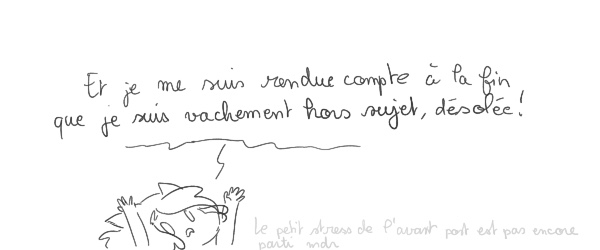 Et je me suis rendue compte à la fin
que je suis vachement hors sujet, désolée!
Le petit stress de l'avant post est pas encore
parti mdr